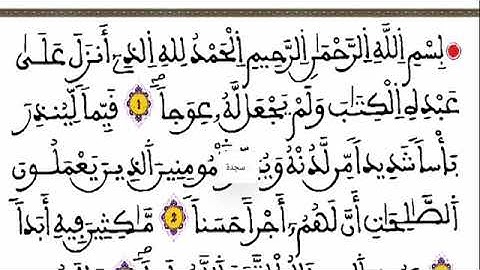 بِسْمِ اللَّهِ الرَّحْمَٰنِ الرَّحِيمِ الْحَمْدُ لِلهِ الذِے أَنزَلَ عَلَىٰ
عَبْدِهِ الْكِتَٰبَ وَلَمْ يَجْعَل لَّهُۥ عِوَجاً ۖ 1 قَيِّماً لِّيُنذِرَ
بَأْساً شَدِيداً مِّن لَّدُنْهُ الْمُومِنِينَ اَلذِينَ يَعْمَلُونَ
سجدة
اَلصَّٰلِحَٰتِ أَنَّ لَهُمُۥٓ أَجْراً حَسَناً 2 مَّٰكِثِينَ فِيهِ أَبَداً